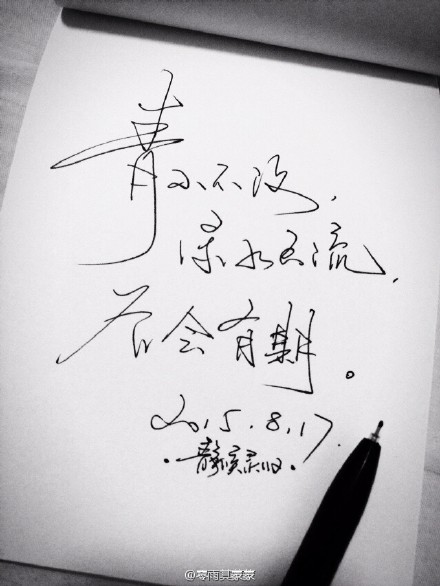 青山不改，
绿水长流，
后会有期。
2015.8.17.
@零雨其蒙蒙